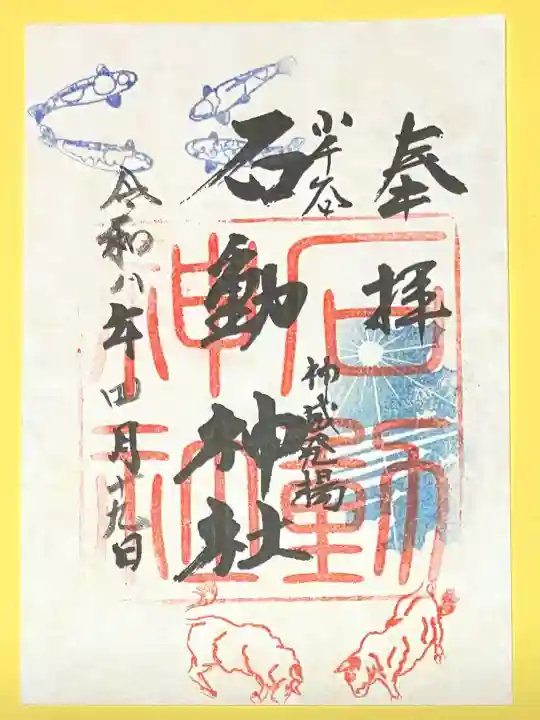 奉拝
小千谷
神威発揚
石動神社
令和八年四月十九日
石動神社